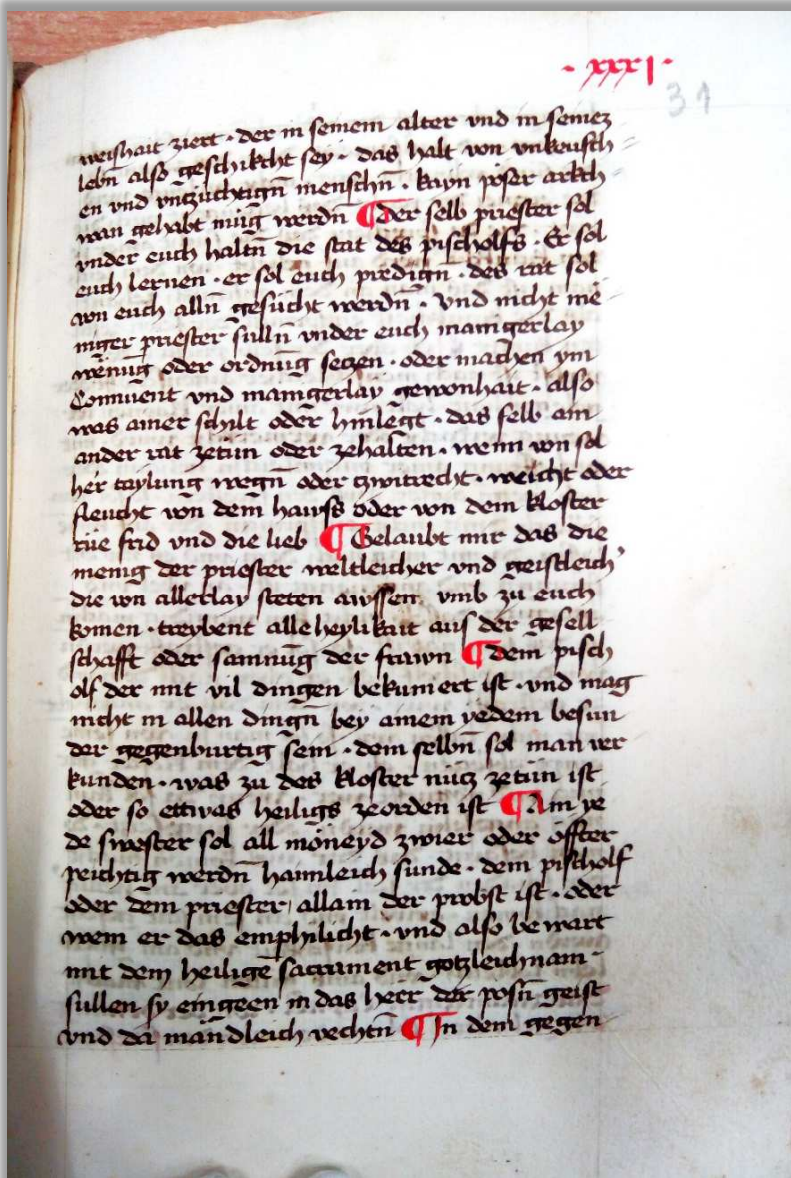 · xxxI ·
31
weishait ziert · der in seinem alter vnd in seinez
lebn̄ also geschikcht sey · das halt von vnkeusch
en vnd vnzüchtign̄ menschn̄ · kayn pöser arkch
wan gehabt müg werdn̄ ¶ der selb priester sol
vnder euch haltn̄ die stat des pischolfs · Er sol
euch lernen · er sol euch predign̄ · des rat sol
von euch alln̄ gesücht werdn̄ · vnd nicht me
niger priester sulln̄ vnder euch manigerlay
menūg oder ordnūg seczen · oder machen ym
Conuent vnd manigerlay gewonhait · also
was ainer schilt oder hinlegt · das selb ain
ander rat zetün oder zehalten · wenn von sol
her taylung wegn̄ oder czwitrecht · weicht oder
fleucht von dem hawss oder von dem kloster
rüe frid vnd die lieb ¶ Gelaubt mir das die
menig der priester weltleicher vnd geistleich'
die von allerlay steten awssen vmb zu euch
komen · treybent alle heylikait aus der gesell
schafft oder samnūg der frawn ¶ dem pisch
olf der mit vil dingen bekumert ist · vnd mag
nicht in allen dingn̄ bey ainem yedem besun
der gegenburtig sein · dem selbn̄ sol man ver
kunden · was zu des kloster nücz zetün ist
oder so ettwas heiligs zeorden ist ¶ Ain ye
de swester sol all möneyd zwier oder öffter
peichtig werdn̄ haimleich sunde · dem pischolf
oder dem priester / allain der probst ist · oder
wem er das emphilicht · vnd also bewart
mit dem heiligē sacrament gotzleichnam ·
sullen sy eingeen in das heer der posn̄ geist
vnd da mandleich vechtn̄ ¶ In dem gegen